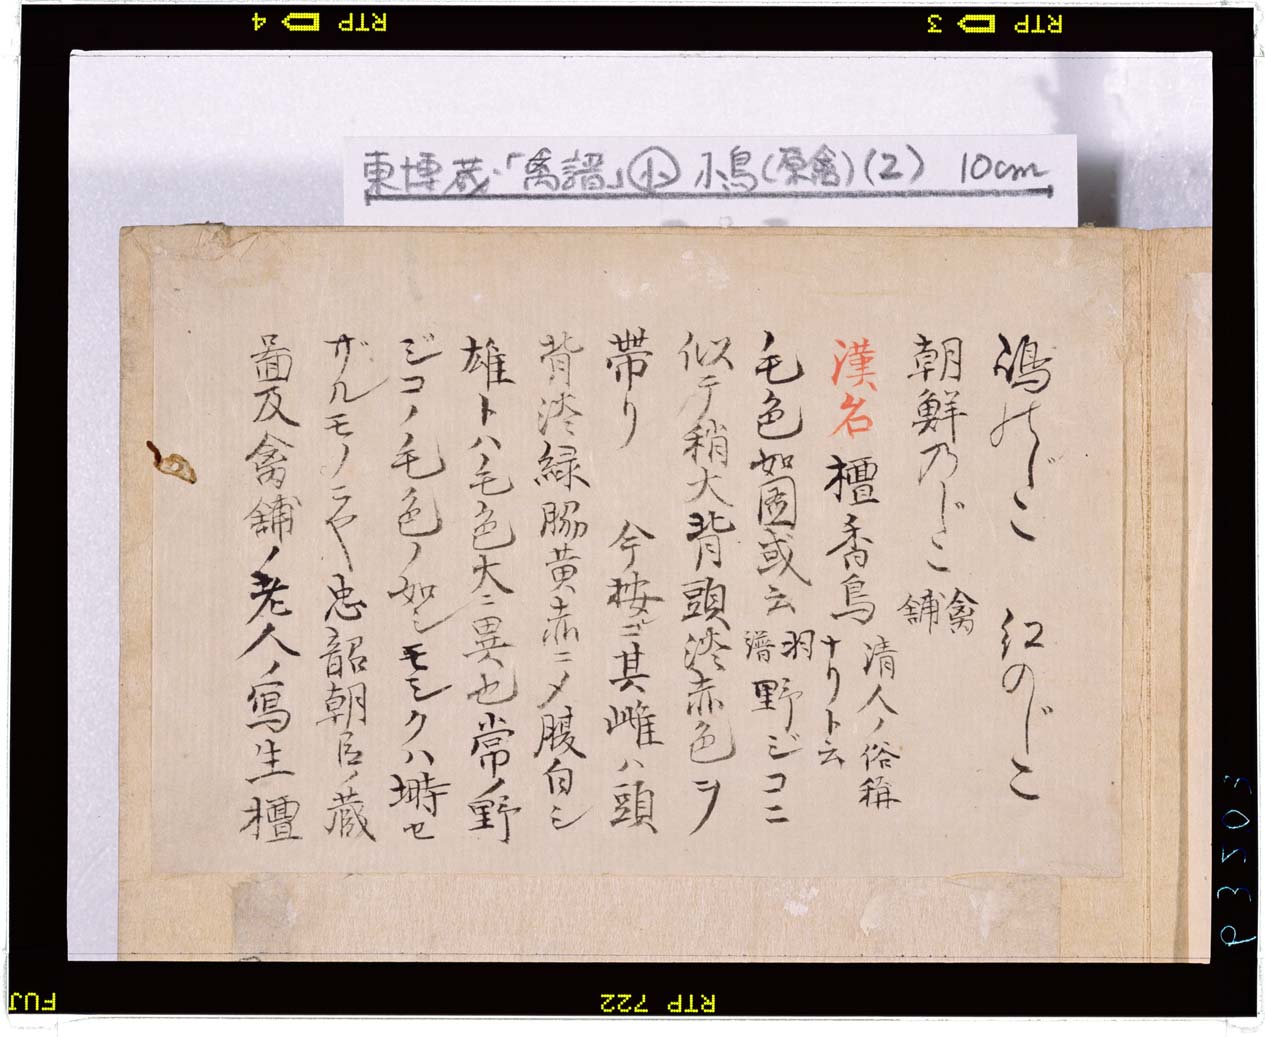 RTP 4
RTP 3
東博蔵・「禽譜」㊦小鳥(原禽)(2) 10cm
嶋のじこ 紅のじこ
朝鮮乃じこ 禽舗
漢名 檀香鳥 清人ノ俗称ナリト云
毛色如図或云 羽譜 野ジコニ
似テ稍大背頭淡赤色ヲ
帯リ 今按ニ其雌ハ頭
背淡緑脇黄赤ニメ腹白シ
雄トハ毛色大ニ異也常ノ野
ジコノ毛色ノ如シモシクハ塒セ
ザルモノ 忠韶朝臣ノ蔵
啚及禽舗ノ老人ノ寫生檀
P3503
FUJ
RTP 722